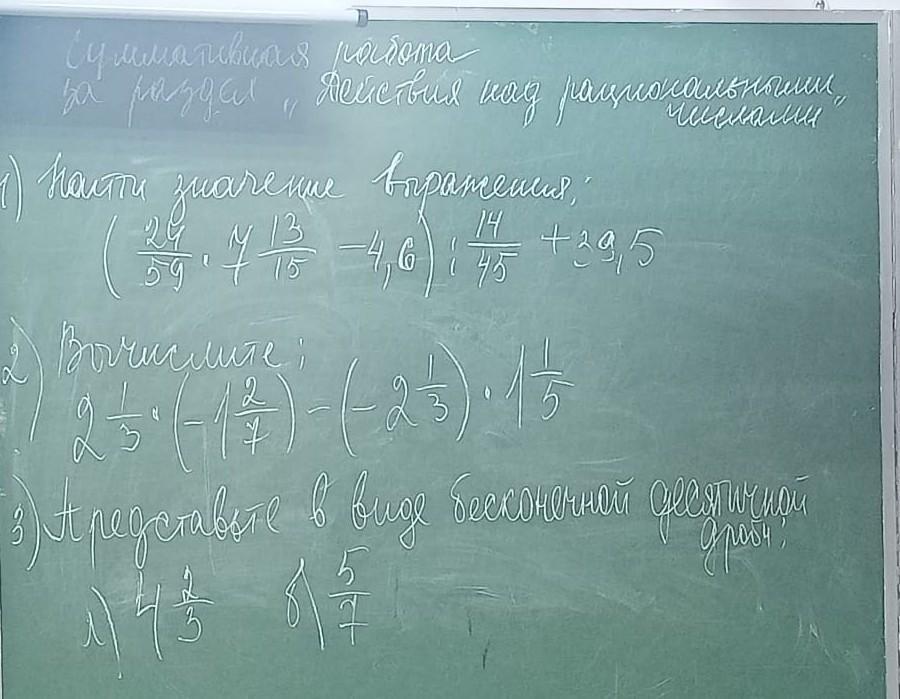 Суммативная работа
за раздел „Действия над рациональными
числами"
1) Найти значение выражения:
(24/59 · 7 13/15 - 4,6) : 14/45 + 39,5
2) Вычислите:
2 1/3 · (-1 2/7) - (-2 1/3) · 1 1/5
3) Представьте в виде бесконечной десятичной
дроби:
а) 4 2/3 б) 5/7